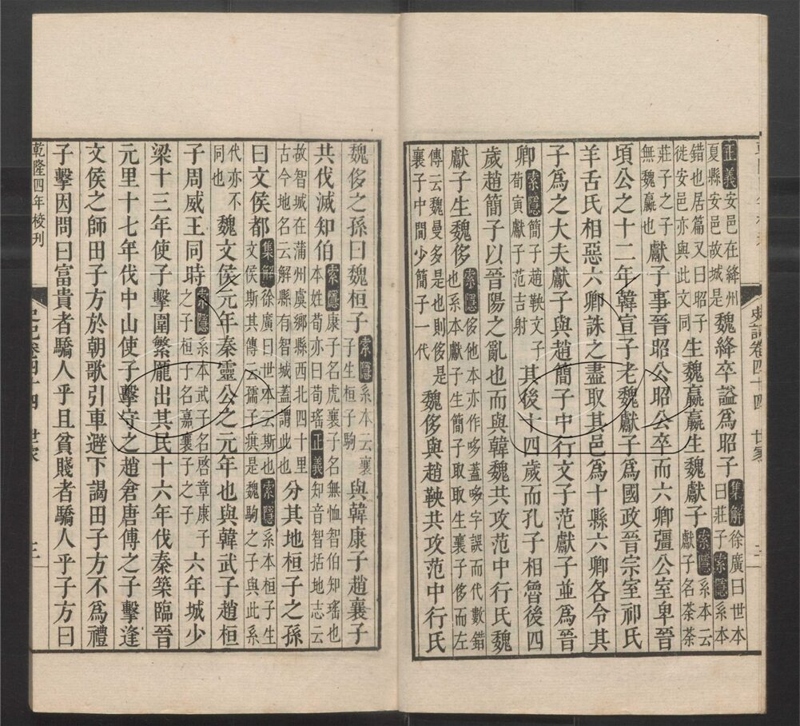 正義安邑在絳州夏縣安邑故城是 魏絳卒謚爲昭子 集解徐廣曰世本曰莊子索隱系本
錯也居篇又曰昭子徙安邑亦與此文同 生魏嬴嬴生魏獻子 索隱系本云獻子名荼荼
莊子之子無魏嬴也 獻子事晉昭公昭公卒而六卿彊公室卑晉
頃公之十二年韓宣子老魏獻子爲國政晉宗室祁氏
羊舌氏相惡六卿誅之盡取其邑爲十縣六卿各令其
子爲之大夫獻子與趙簡子中行文子范獻子並爲晉
卿 索隱簡子趙鞅文子荀寅獻子范吉射 其後十四歲而孔子相魯後四
歲趙簡子以晉陽之亂也而與韓魏共攻范中行氏魏
獻子生魏侈 索隱侈他本亦作哆蓋哆字誤而代數錯也系本獻子生簡子取取生襄子侈而左
傳云魏曼多是也則侈是襄子中間少簡子一代 魏侈與趙鞅共攻范中行氏
魏侈之孫曰魏桓子 索隱系本云襄子生桓子駒 與韓康子趙襄子
共伐滅知伯 索隱康子名虎襄子名無恤智伯知瑤也本姓荀亦曰荀瑤正義知音智括地志云
故智城在蒲州虞鄉縣西北四十里古今地名云解縣有智城蓋謂此也 分其地桓子之孫
曰文侯都 集解徐廣曰世本曰斯也索隱系本桓子生文侯斯其傳云孺子㾇是魏駒之子與此系
代亦不同也 魏文侯元年秦靈公之元年也與韓武子趙桓
子周威王同時 索隱系本武子名啓章康子之子桓子名嘉襄子之子 六年城少
梁十三年使子擊圍繁龐出其民十六年伐秦築臨晉
元里十七年伐中山使子擊守之趙倉唐傅之子擊逢
文侯之師田子方於朝歌引車避下謁田子方不爲禮
子擊因問曰富貴者驕人乎且貧賤者驕人乎子方曰
乾隆四年校刊
史記卷四十四 世家